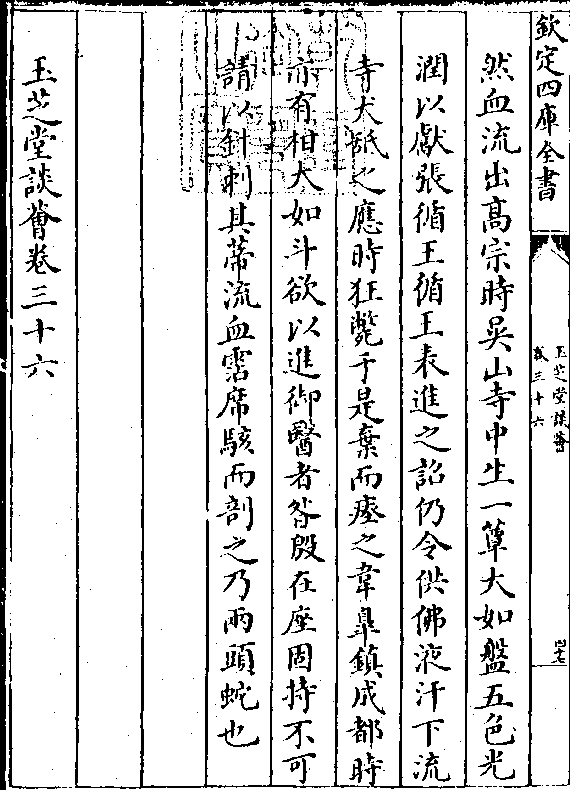 欽定四庫全書
玉芝堂談薈
卷三十六
四十七
然血流出高宗時吳山寺中生一蕈大如盤五色光
潤以獻張循王循王表進之詔仍令供佛液汗下流
寺犬舐之應時狂斃于是棄而瘞之韋臯鎮成都時
亦有柑大如斗欲以進御醫者昝殷在座固持不可
請以針刺其蒂流血霑席駭而剖之乃兩頭蛇也
玉芝堂談薈卷三十六